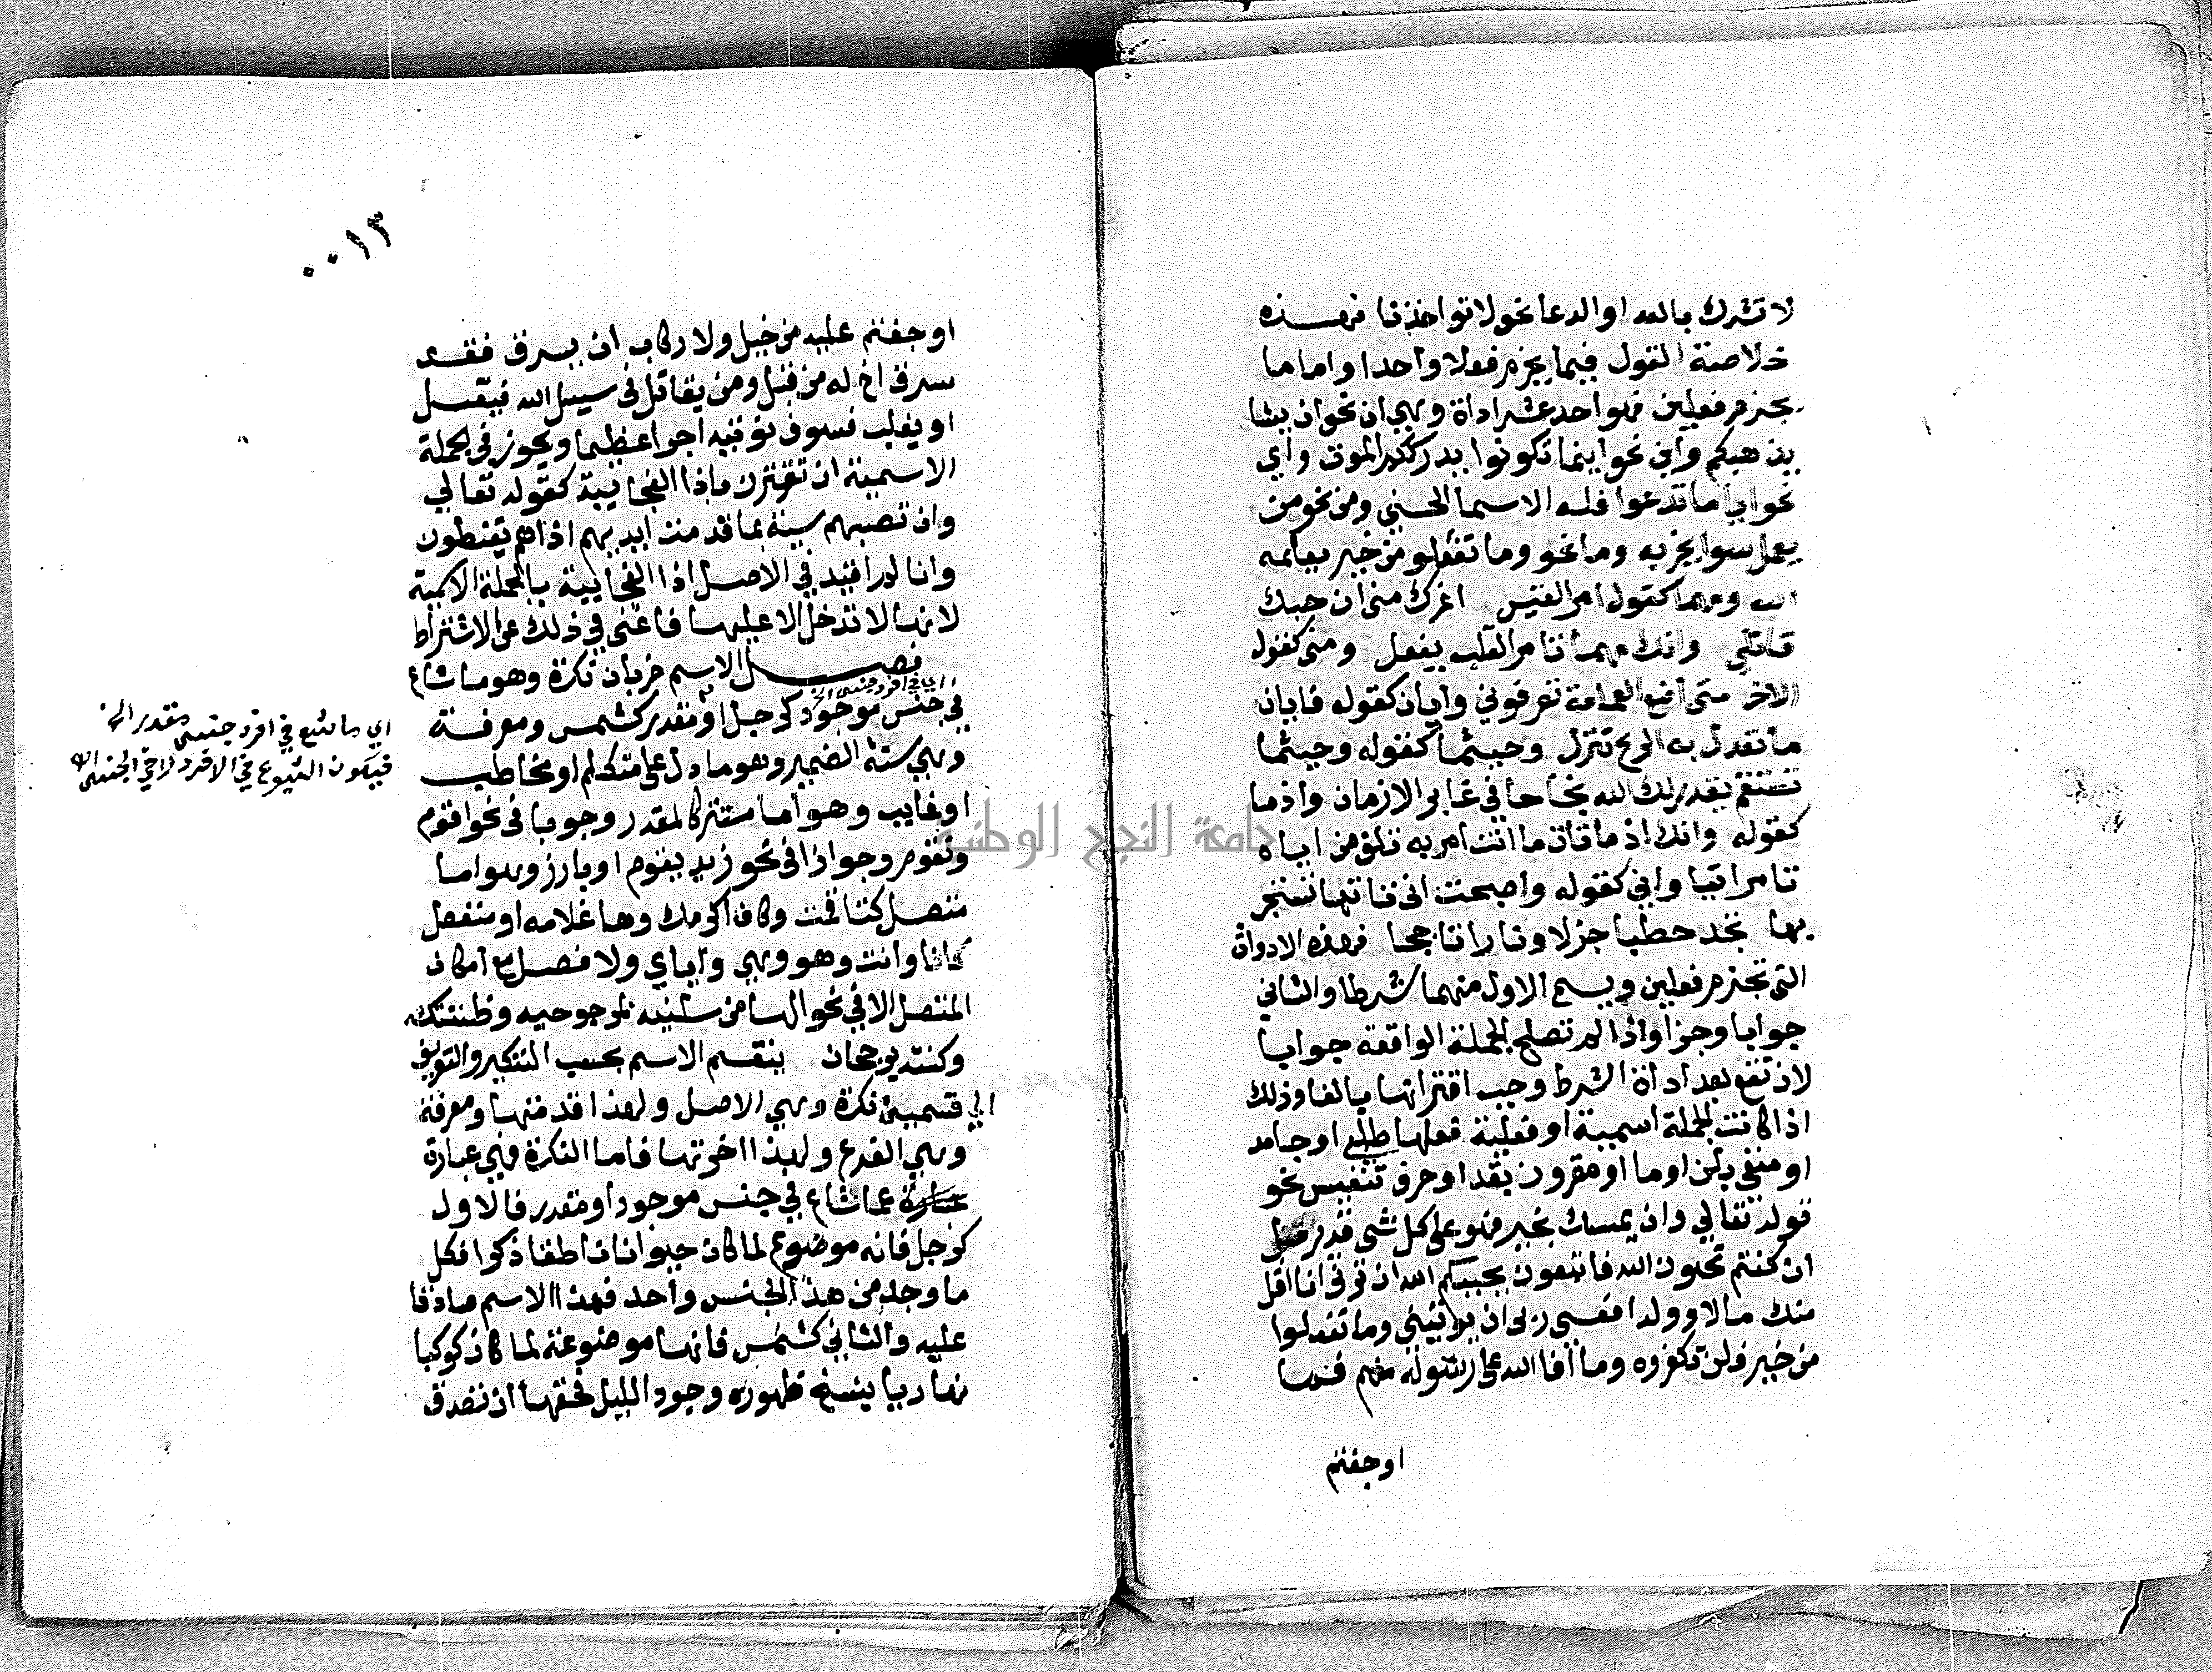 لا تشرك بالله او الدعا نحو لا تواخذنا فهذه
خلاصة القول فيما يجزم فعلا واحدا واما ما
يجزم فعلين فهو احد عشر اداة وهي ان نحو ان يشا
يذهبكم واين نحو اينما تكونوا يدرككم الموت واي
نحو ايا ما تدعوا فله الاسما الحسني ومن نحو من
يعمل سوا يجز به وما نحو وما تفعلو من خير يعلمه
الله ومهما كقول امر القيس اغرك مني ان حبك
قاتلي وانك مهما تامر القلب يفعل ومتى كقول
الاخر متى اضع العمامة تعرفوني وايان كقوله فايان
ما تعدل به الريح تنزل وحيثما كقوله وحيثما
تستقم يقدر لك الله نجاحا في غابر الازمان واذما
كقوله وانك اذ ما تات ما انت امر به تلق من اياه
تامر اتيا واني كقوله واصبحت انى تاتها تستجر
بها تجد حطبا جزلا ونارا تاججا فهذه الادوات
التي تجزم فعلين ويسمى الاول منهما شرطا والثاني
جوابا وجزا واذا لم تصلح الجملة الواقعة جوابا
لان تقع بعد اداة الشرط وجب اقترانها بالفا وذلك
اذا كانت الجملة اسمية او فعلية فعلها طلبي او جامد
او منفي بلن او ما او مقرون بقد او حرف تنفيس نحو
قوله تعالي وان يمسك بخير فهو على كل شي قدير قل
ان كنتم تحبون الله فاتبعون يحببكم الله ان ترني انا اقل
منك مالا وولدا فعسى ربى ان يوتيني وما تفعلوا
من خير فلن تكفروه وما أفا الله على رسوله منهم فما
اوجفتم
٠٠١٣
اوجفتم عليه من خيل ولا ركاب ان يسرق فقد
سرق اخ له من قبل ومن يقاتل في سبيل الله فيقتل
او يغلب فسوف نوتيه اجرا عظيما ويجوز في الجملة
الاسمية ان تقترن باذا الفجايية كقوله تعالي
وان تصبهم سيئة بما قدمت ايديهم اذا هم يقنطون
وانا لم اقيد في الاصل اذا الفجايية بالجملة الاسمية
لانها لا تدخل الا عليها فاغنى في ذلك عن الاشتراط
فصل الاسم ضربان نكرة وهو ما شاع
اي في افرد جنس الخ
في جنس موجود كرجل او مقدر كشمس ومعرفة
وهي ستة الضمير وهو ما دل على متكلم او مخاطب
او غايب وهو اما مستتر كالمقدر وجوبا في نحو اقوم
ونقوم وجوازا في نحو زيد يقوم او بارز وهو اما
متصل كتا قمت وكاف اكرمك وها غلامه او منفصل
كانا وانت وهو وهي واياي ولا فصل مع امكان
المتصل الا في نحو الها من سلنيه بمرجوحيه وظننتكه
وكنته برجحان ينقسم الاسم بحسب التنكير والتعريف
الي قسمين نكرة وهي الاصل ولهذا قدمتها ومعرفة
وهي الفرع ولهذا اخرتها فاما النكرة فهي عبارة
عبارة عما شاع في جنس موجود او مقدر فالاول
كرجل فانه موضوع لما كان حيوانا ناطقا ذكرا فكل
ما وجد من هذا الجنس واحد فهذا الاسم صادقا
عليه والثاني كشمس فانها موضوعة لما كان كوكبا
نهاريا ينسخ ظهوره وجود الليل فحقها ان تصدق
اي ما شاع في افرد جنس مقدر الخ
فيكون الشيوع في الافرد لا في الجنس اﻫ
جامعة النجاح الوطنية